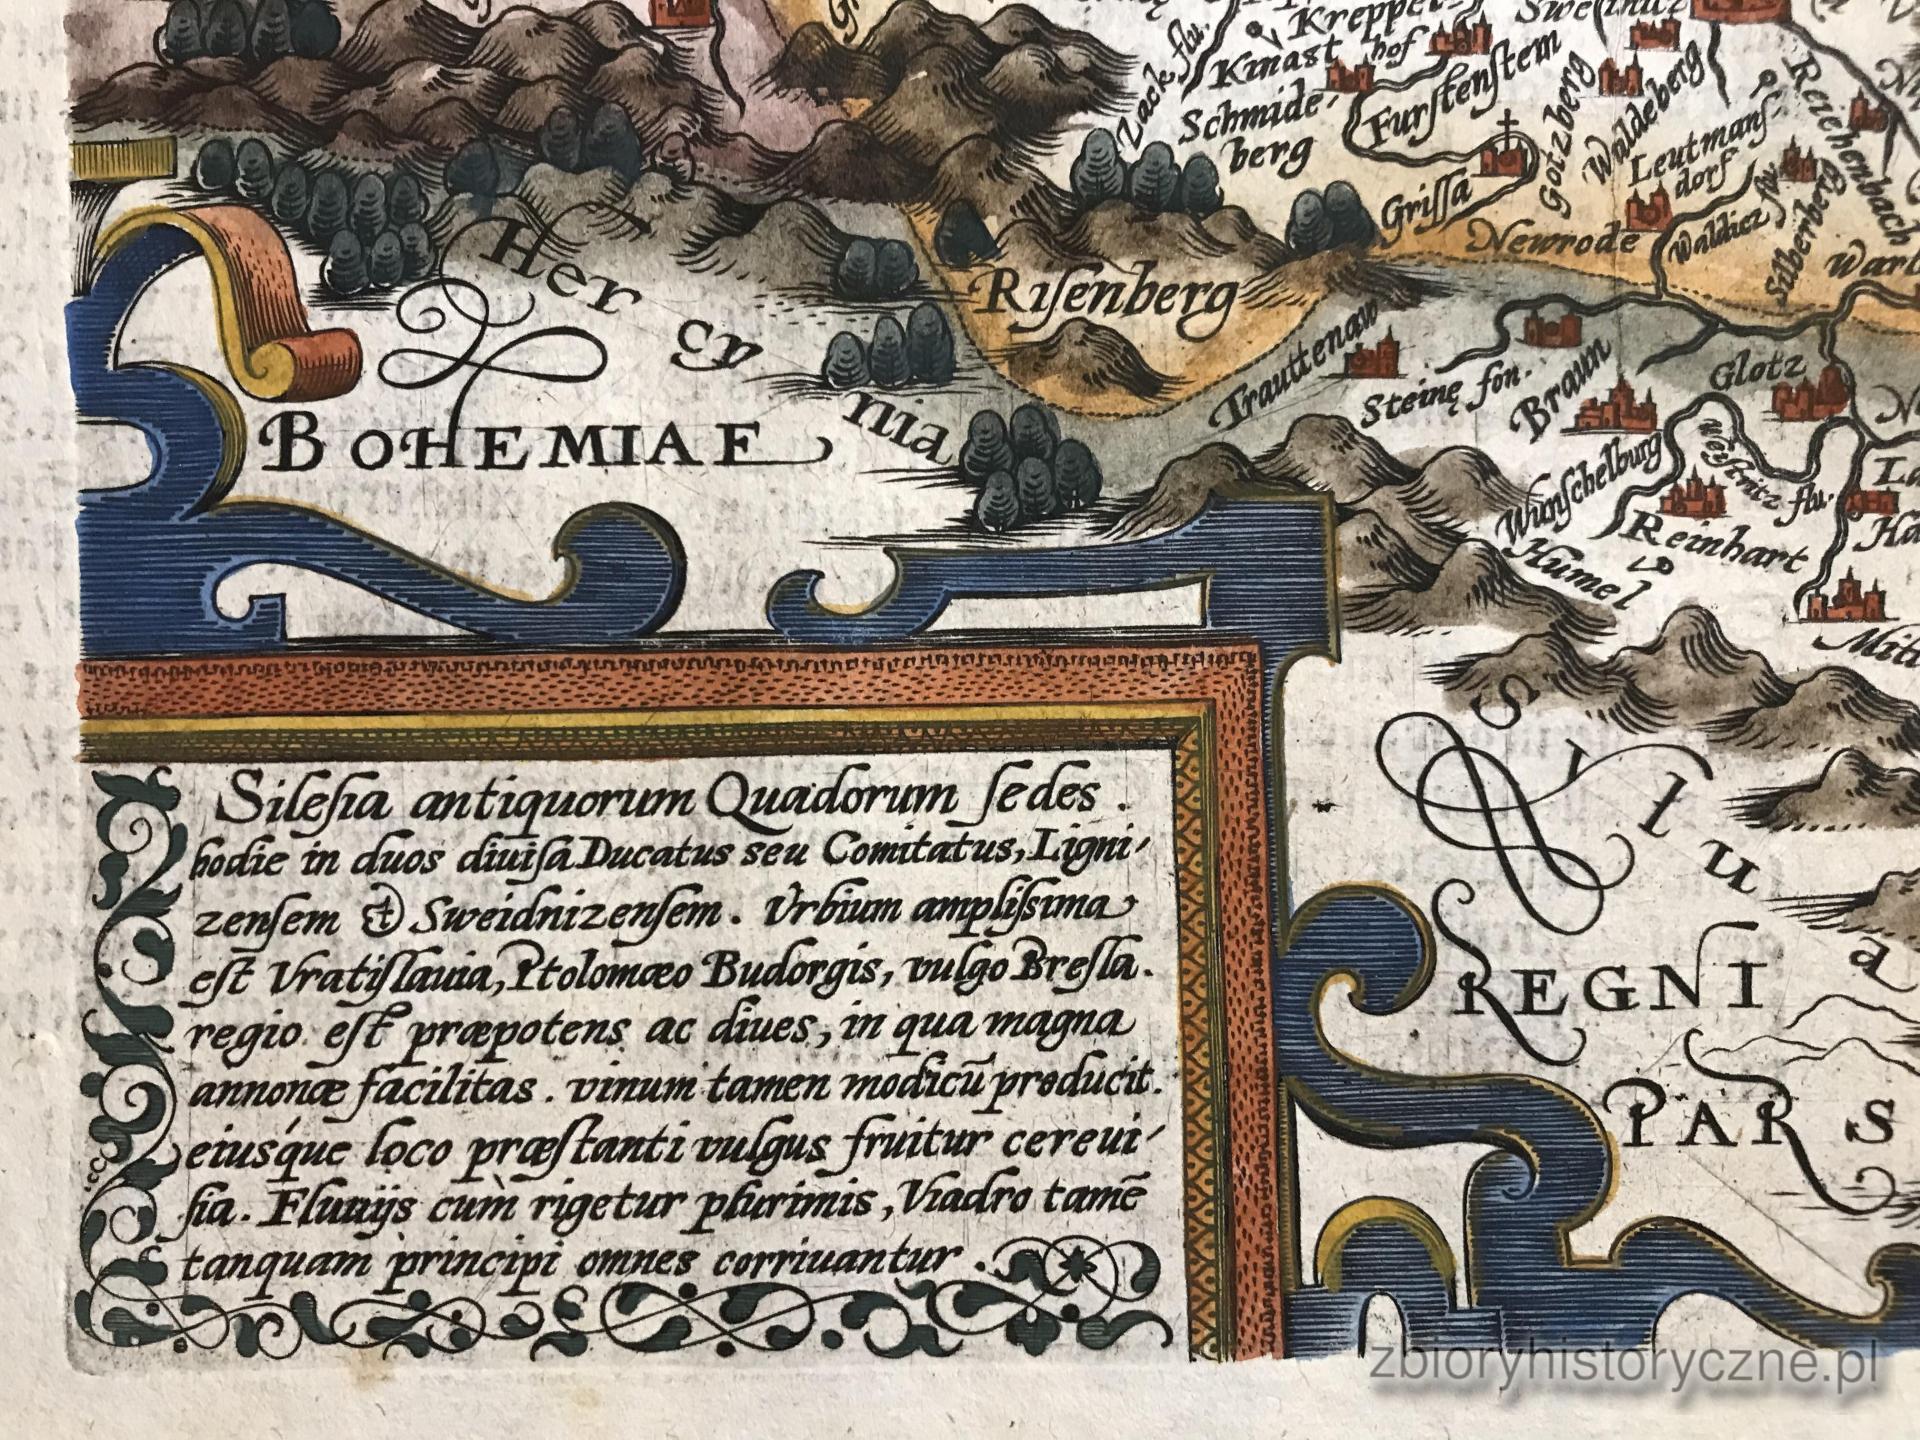 Kreppel
hof
Kinast
Zack flu.
Schmide-
berg
Furſtenſtein
Gotzberg
Waldeberg
Leutmanſ-
dorf
Reichenbach
Griſſa
Newrode
Waldicz flu.
Silberberg
Riſenberg
Trauttenaw
Steinę fon.
Braun
Glotz
Wunſchelburg
Weſtritz flu.
Reinhart
Humel
Hercynia
BOHEMIAE
Sylua
REGNI
PARS
Sileſia antiquorum Quadorum ſedes.
hodie in duos diuiſa Ducatus seu Comitatus, Ligni-
zenſem & Sweidnizenſem. Vrbium ampliſsima
eſt Vratiſlauia, Ptolomæo Budorgis, vulgo Breſla.
regio eſt præpotens ac diues, in qua magna
annonæ facilitas. vinum tamen modicū producit.
eiusq́ue loco præſtanti vulgus fruitur cereui-
ſia. Fluuijs cum̀ rigetur plurimis, Viadro tamē
tanquam principi omnes corriuantur.
zbioryhistoryczne.pl